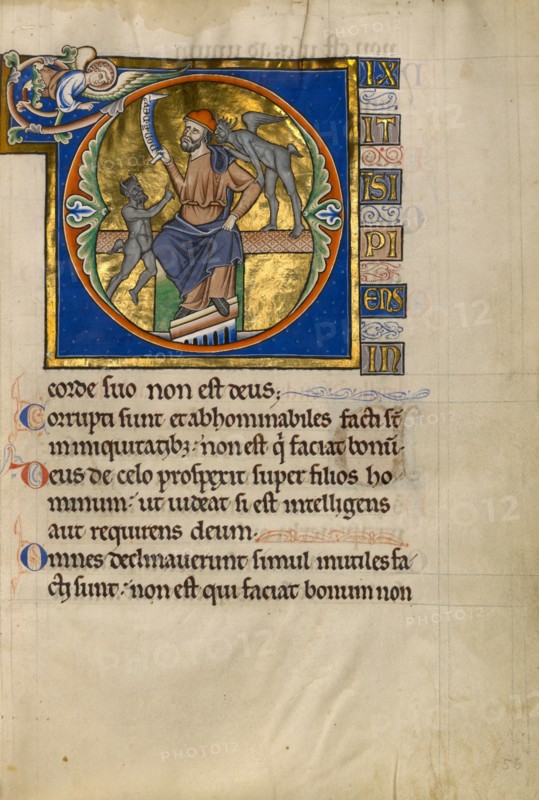 IX
IT
ĪSI
PI
ENS
IN
corde suo non est deus;
Corrupti sunt et abhominabiles facti st̄
in iniquitatibȝ: non est q̇ faciat bonū.
Deus de celo prospexit super filios ho
minum: ut uideat si est intelligens
aut requirens deum.
Omnes declinauerunt simul inutiles fa
cti sunt: non est qui faciat bonum non
56
PHOTO12